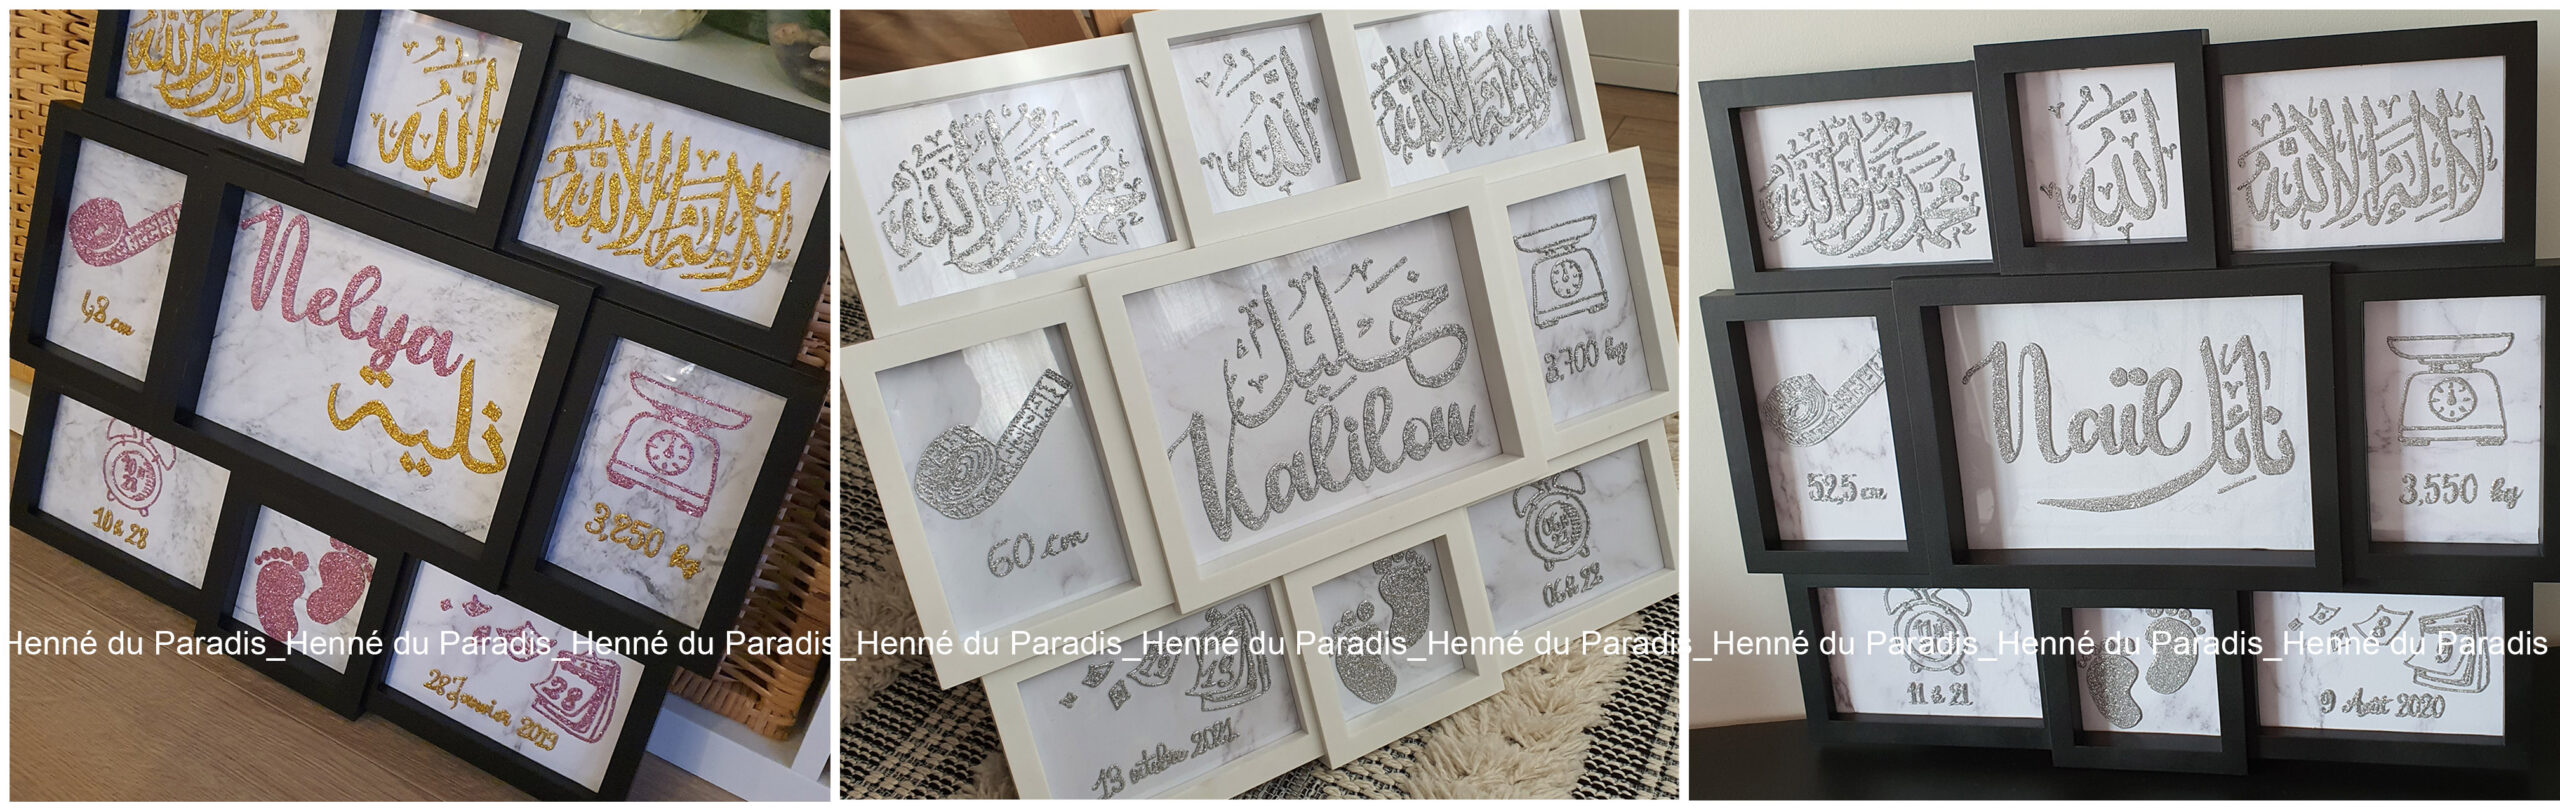 محمد رسول الله
الله
لا إله إلا الله
48 cm
Nelya
نلية
3,250 kg
10h28
28 Janvier 2019
28
محمد رسول الله
الله
لا إله إلا الله
60 cm
Kalilou
3.700 kg
13 octobre 2021
13
06h22
محمد رسول الله
الله
لا إله إلا الله
52,5 cm
Naïl
نائل
3,550 kg
11h21
9 Août 2020
8
9
Henné du Paradis_Henné du Paradis_Henné du Paradis_Henné du Paradis_Henné du Paradis_Henné du Paradis_Henné du Paradis_Henné du Paradis_Henné du Paradis